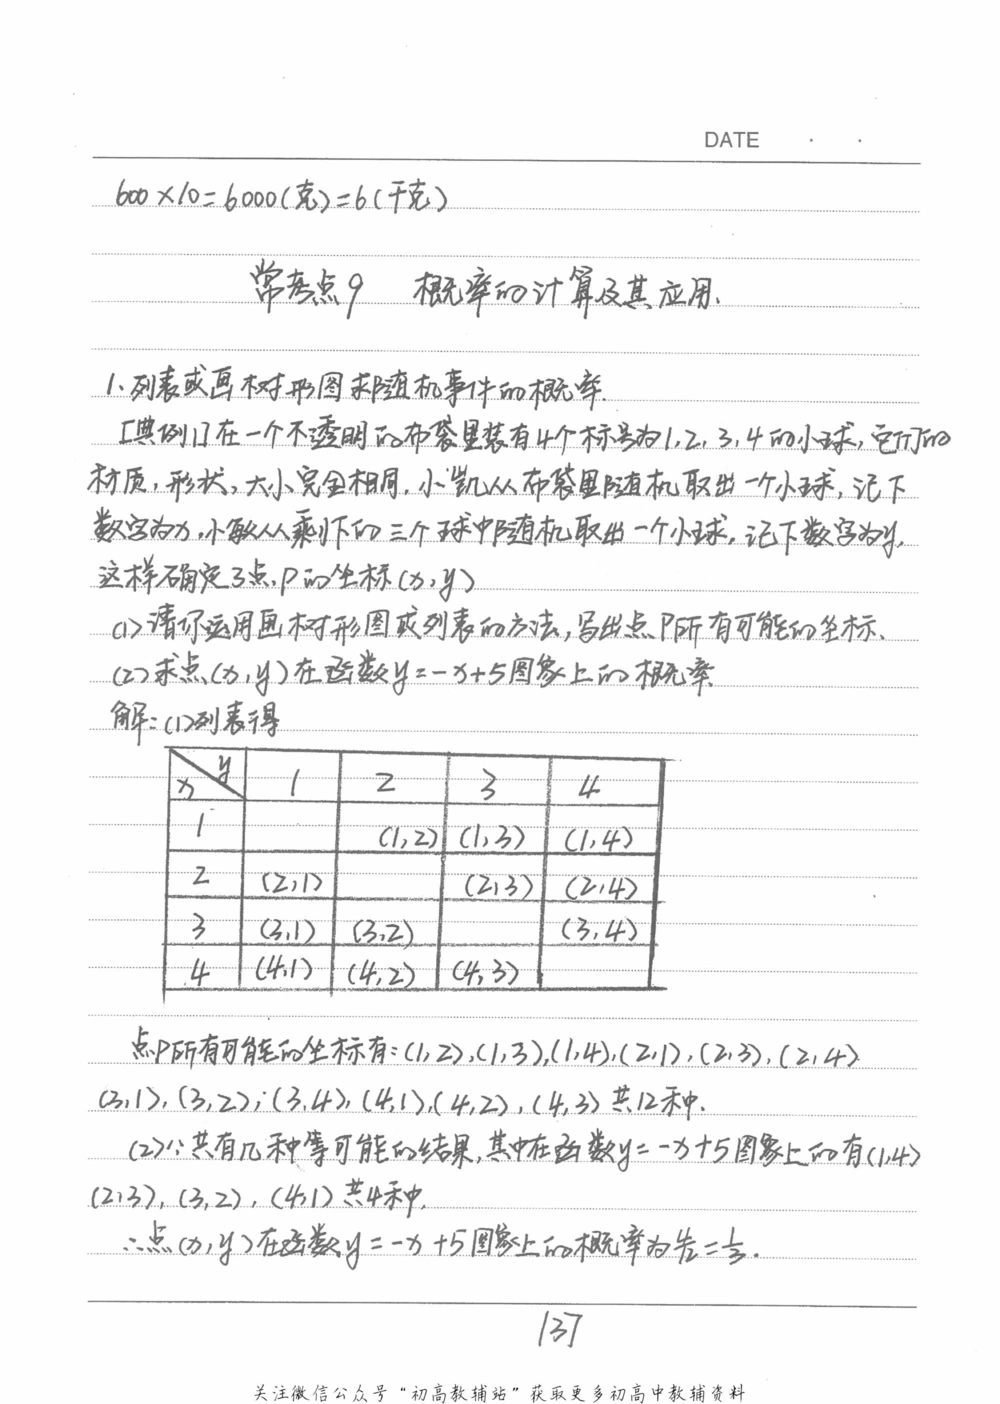 DATE · ·
600×10=6000(克)=6(千克)
常考点9 概率的计算及其应用.
1.列表或画树形图求随机事件的概率.
[典例1]在一个不透明的布袋里装有4个标号为1,2,3,4的小球,它们的
材质,形状,大小完全相同,小凯从布袋里随机取出一个小球,记下
数字为x,小敏从剩下的三个球中随机取出一个小球,记下数字为y,
这样确定了点P的坐标(x,y)
(1)请你运用画树形图或列表的方法,写出点P所有可能的坐标.
(2)求点(x,y)在函数y=-x+5图象上的概率
解:(1)列表得
x y 1 2 3 4
1 (1,2) (1,3) (1,4)
2 (2,1) (2,3) (2,4)
3 (3,1) (3,2) (3,4)
4 (4,1) (4,2) (4,3)
点P所有可能的坐标有:(1,2),(1,3),(1,4),(2,1),(2,3),(2,4)
(3,1),(3,2),(3,4),(4,1),(4,2),(4,3)共12种.
(2)∵共有几种等可能的结果,其中在函数y=-x+5图象上的有(1,4)
(2,3),(3,2),(4,1)共4种.
∴点(x,y)在函数y=-x+5图象上的概率为4/12=1/3.
137
关注微信公众号“初高教辅站”获取更多初高中教辅资料